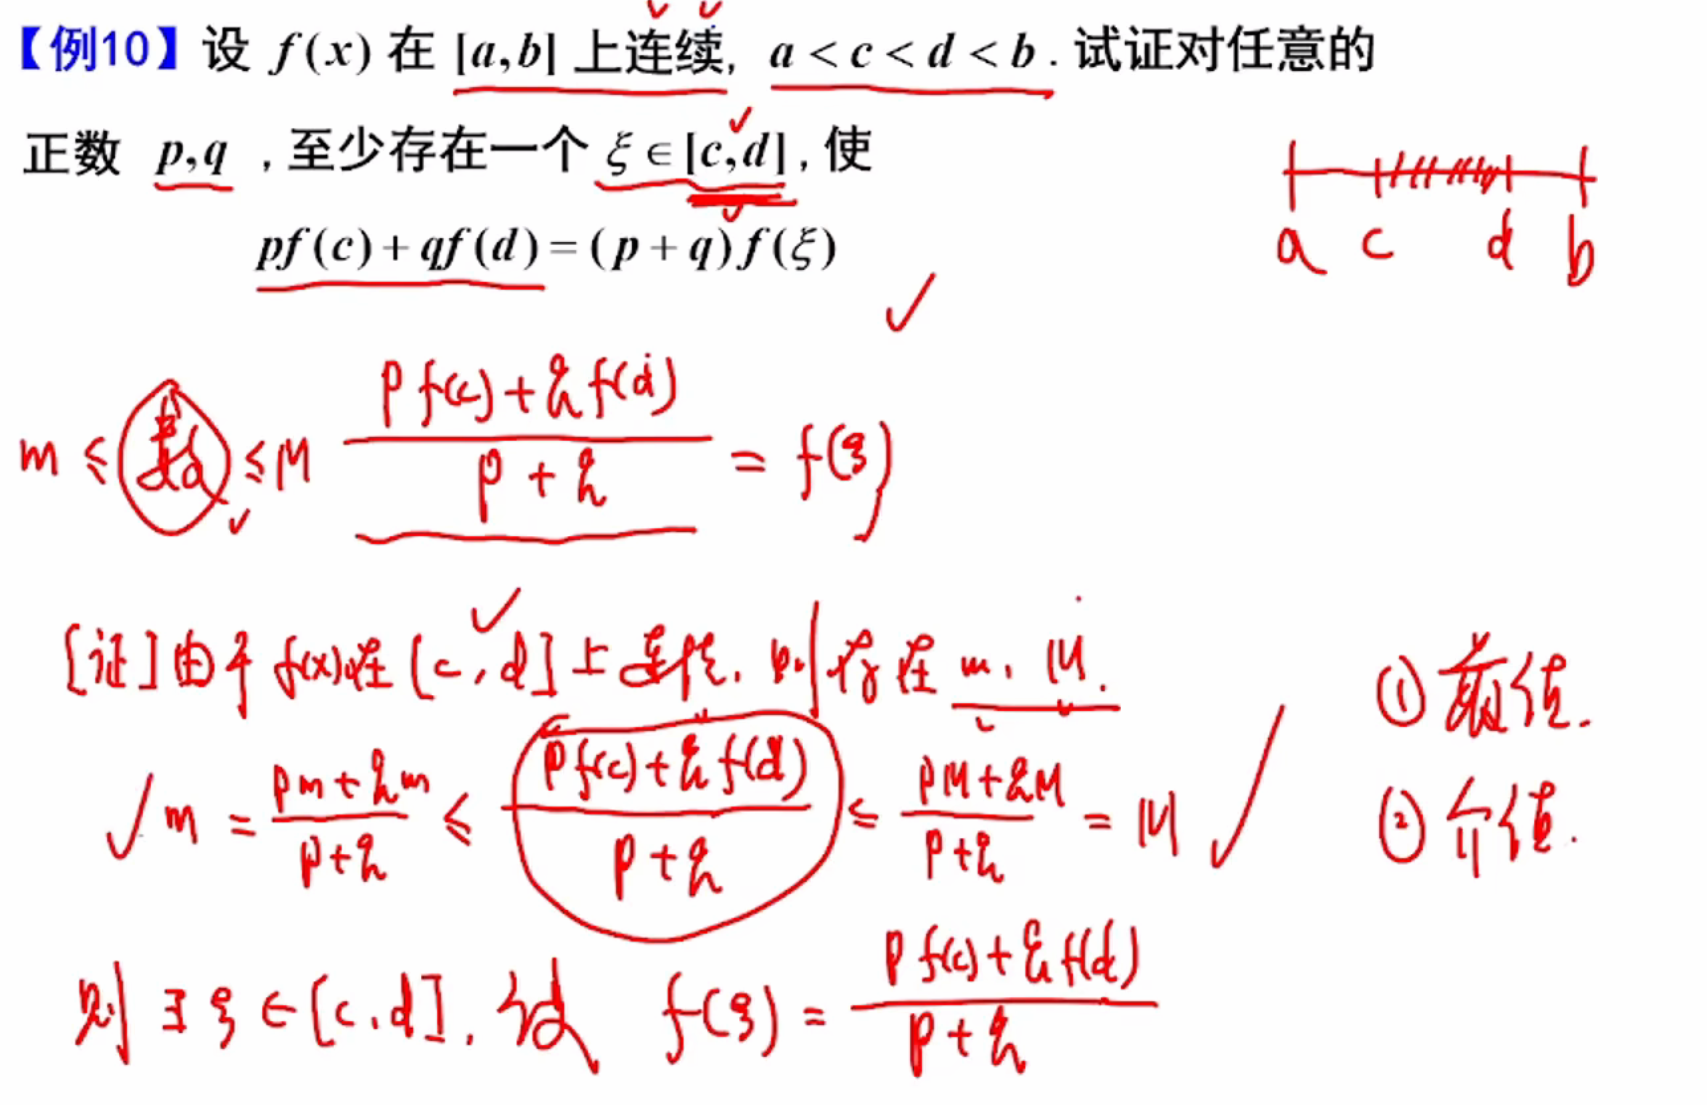 【例10】设 f(x) 在 [a,b] 上连续, a < c < d < b . 试证对任意的
正数 p,q , 至少存在一个 ξ ∈ [c,d] , 使
pf(c) + qf(d) = (p + q)f(ξ)
a c d b
m ≤ 数 ≤ M (p f(c) + q f(d)) / (p + q) = f(ξ)
[证] 由于 f(x) 在 [c, d] 上连续, 则存在 m, M.
① 最值.
m = (pm + qm) / (p + q) ≤ (p f(c) + q f(d)) / (p + q) ≤ (pM + qM) / (p + q) = M
② 介值.
则 ∃ ξ ∈ [c, d], 使 f(ξ) = (p f(c) + q f(d)) / (p + q)